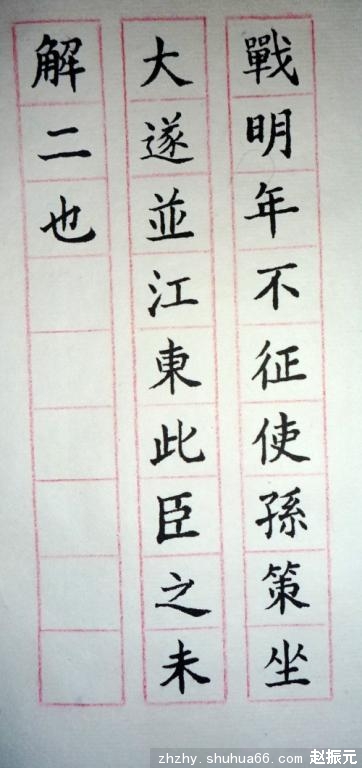 戰明年不征使孫策坐
大遂並江東此臣之未
解二也
zhzhy.shuhua66.com 赵振元